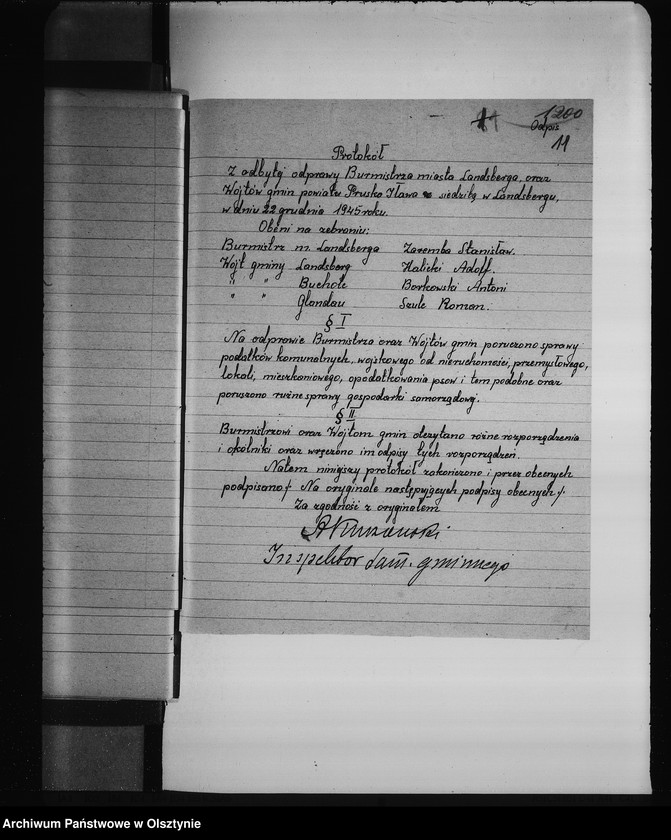 1200
Odpis
11
Protokół
Z odbytej odprawy Burmistrza miasta Landsberga, oraz
Wójtów gmin powiatu Prusko Iława z siedzibą w Landsbergu,
w dniu 22 grudnia 1945 roku.
Obeni na zebraniu:
Burmistrz m. Landsberga Zaremba Stanisław.
Wójt gminy Landsberg Halicki Adolf.
" " Bucholc Borkowski Antoni
" " Glandau Szulc Roman.
§ I
Na odprawie Burmistrza oraz Wójtów gmin poruszono sprawy
podatków komunalnych, wojskowego od nieruchomości, przemysłowego,
lokali, mieszkaniowego, opodatkowania psów i tem podobne oraz
poruszono różne sprawy gospodarki samorządowej.
§ II
Burmistrzowi oraz Wójtom gmin odczytano różne rozporządzenia
i okólniki oraz wręczono im odpisy tych rozporządzeń.
Na tem niniejszy protokół zakończono i przez obecnych
podpisano /. Na oryginale następujących podpisy obecnych /.
Za zgodność z oryginałem
Inspektor sam. gminnego
Archiwum Państwowe w Olsztynie